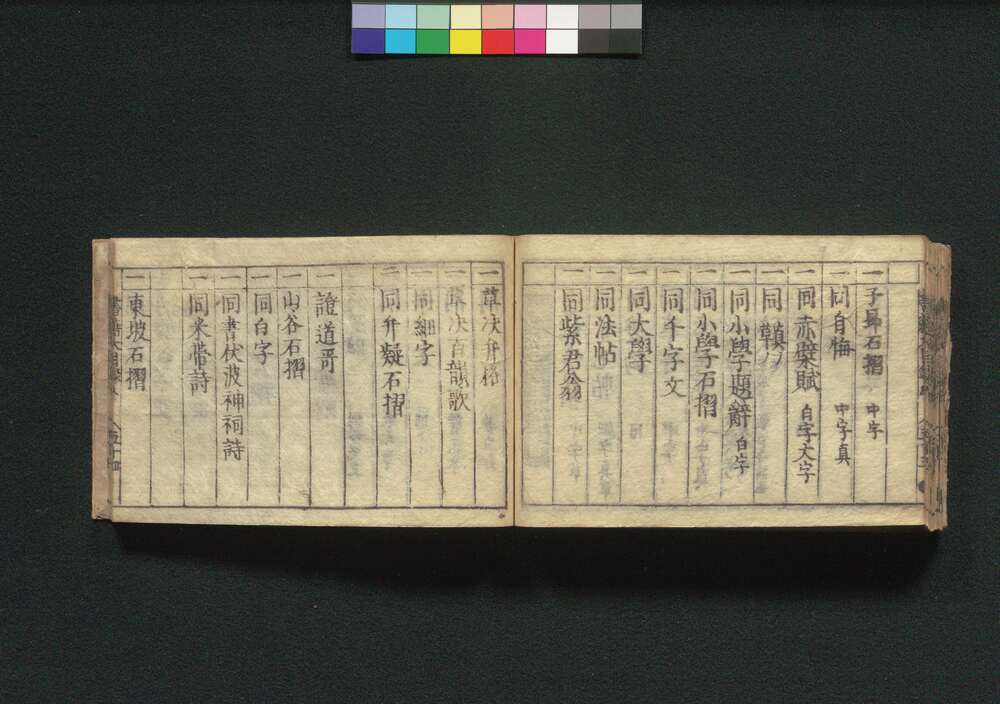 一 子昴石摺 中字
一 同自悔 中字真
一 同赤壁賦 白字大字
一 同
一 同小學題辭 白字
一 同小學石摺
一 同千字文
一 同大學
一 同法帖
一 同紫君翁
一 草决弁格
一 草决百韻歌
一 同細字
二 同弁疑石摺
一 證道哥
一 山谷石摺
一 同白字
一 同書伏波神祠詩
一 同米芾詩
一 東坡石摺